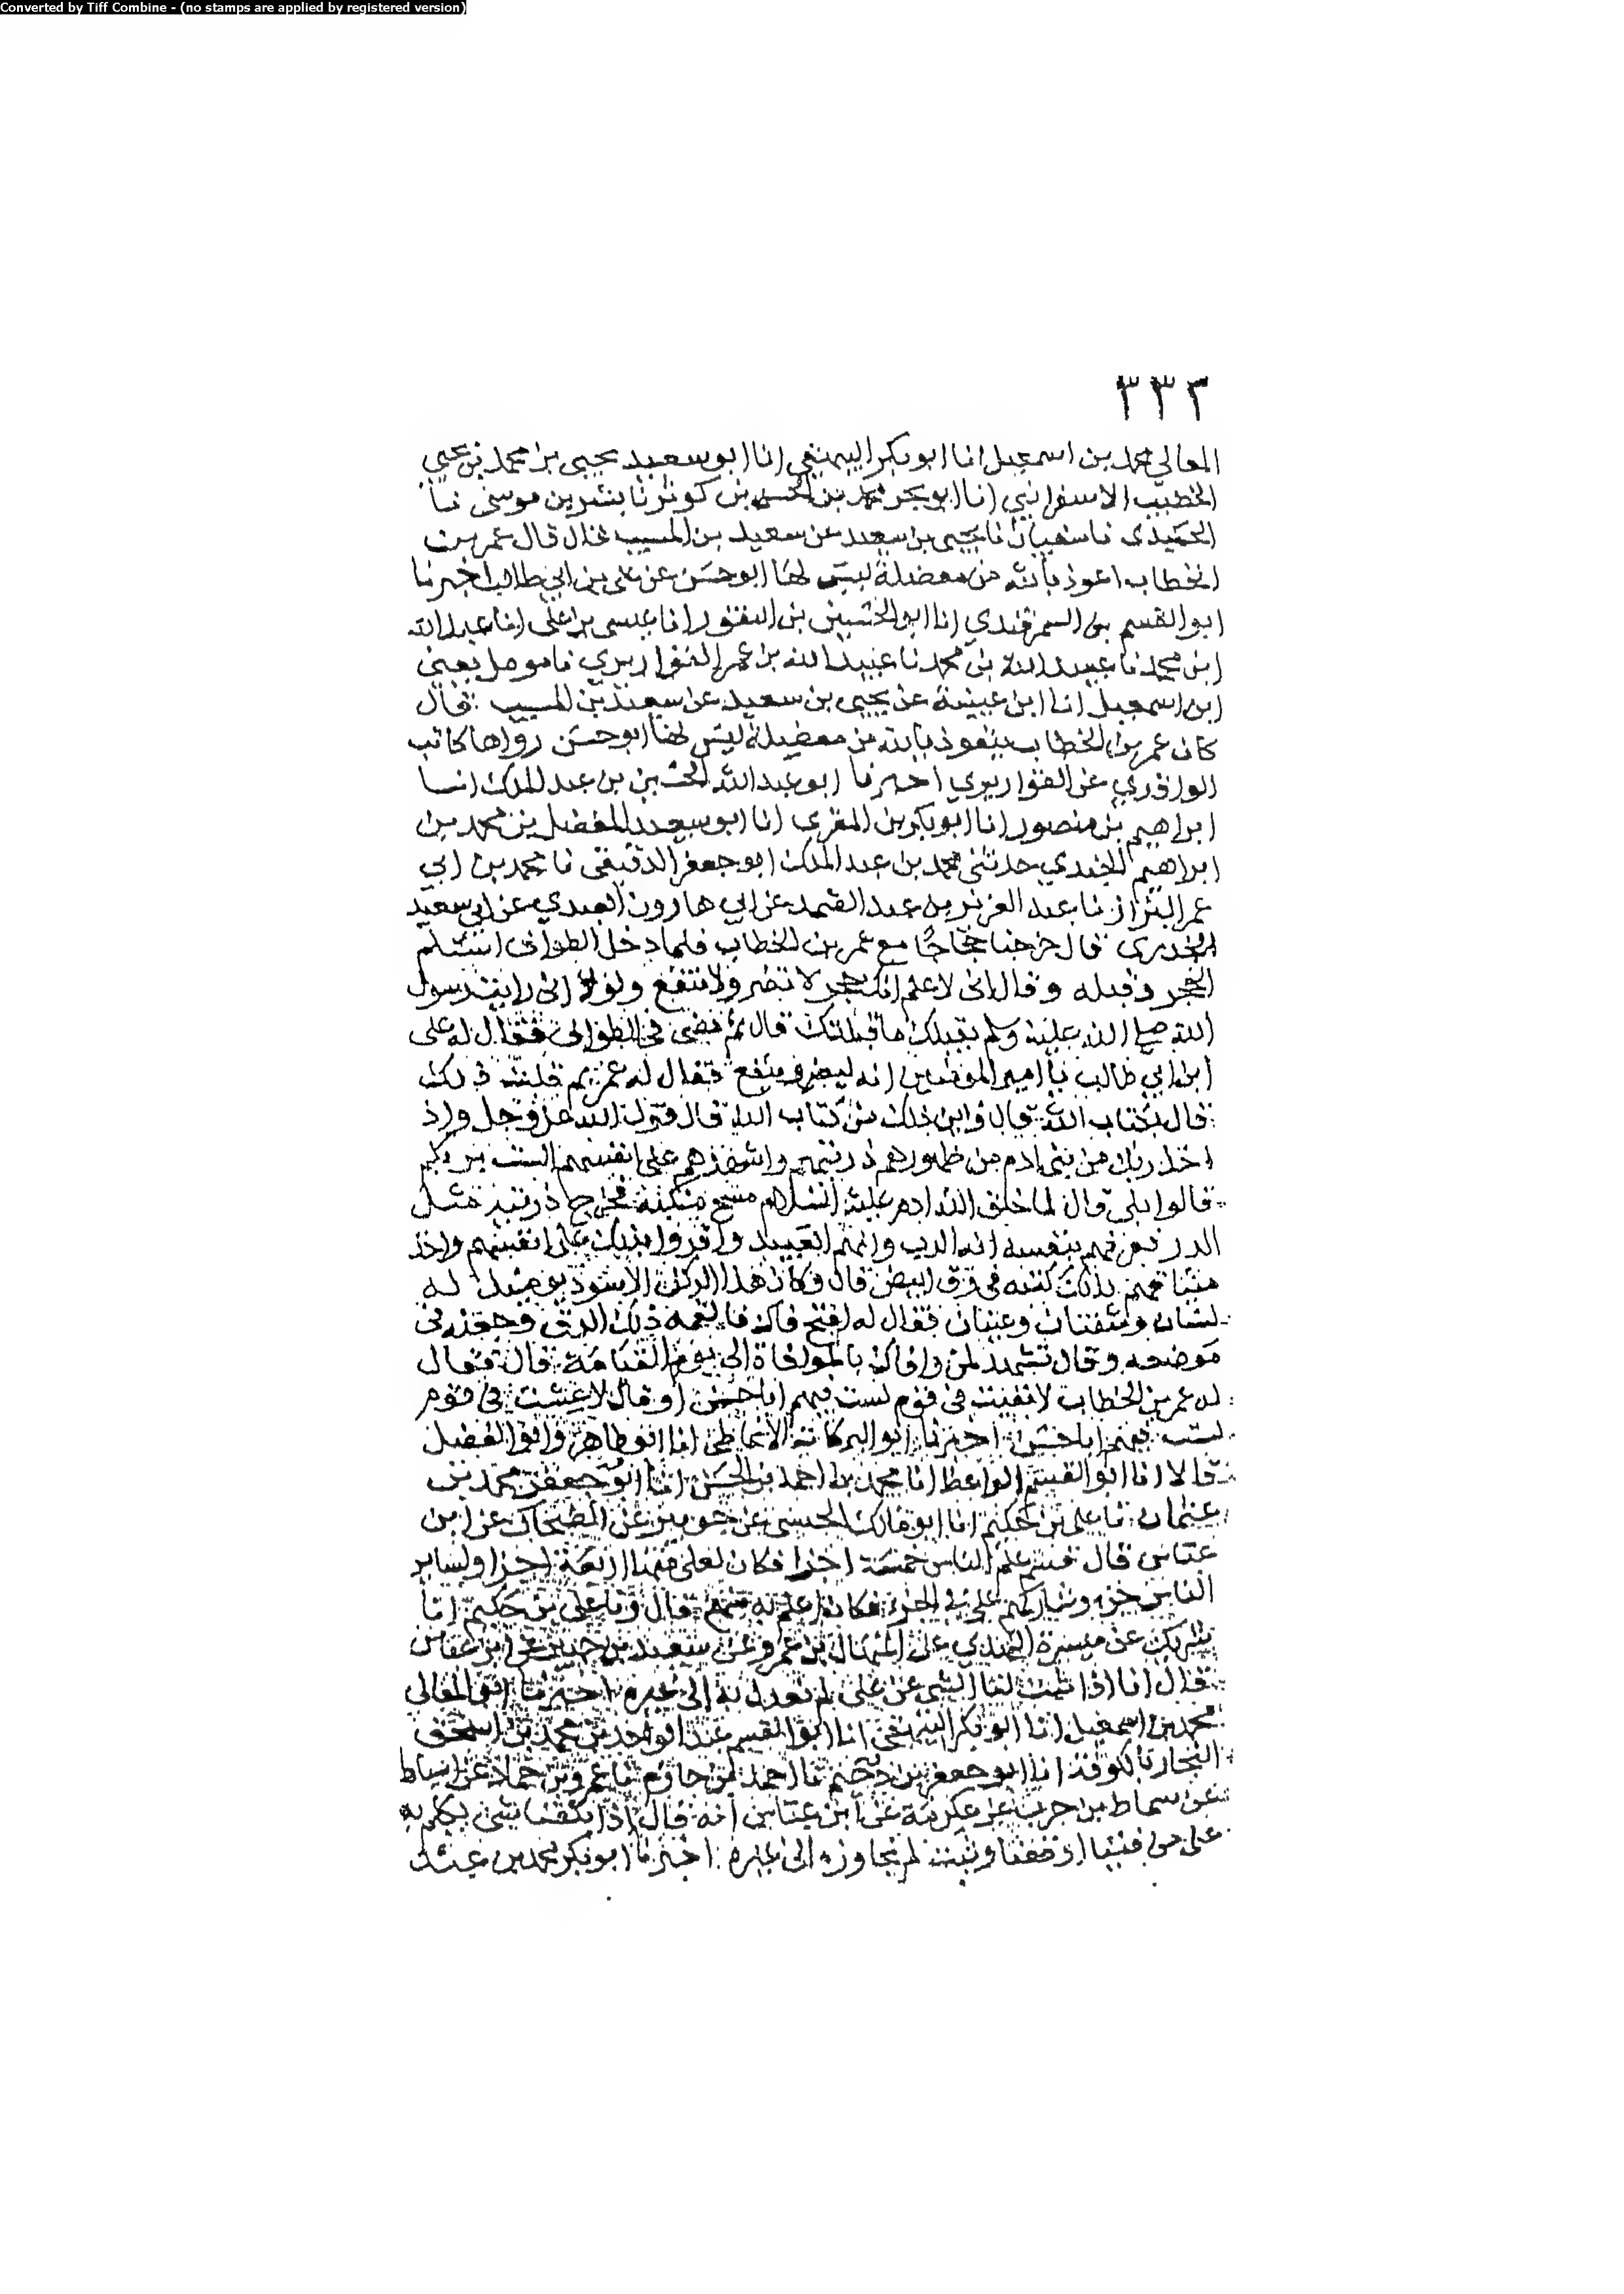 Converted by Tiff Combine - (no stamps are applied by registered version)
٣٣٢
المعالي محمد بن اسمعيل انا ابو بكر البيهقي انا ابو سعيد يحيى بن محمد بن يحيى
الخطيب الاسفرائيني انا ابو بحر محمد بن الحسن بن كوثر نا بشر بن موسى نا
الحميدي نا سفيان نا يحيى بن سعيد عن سعيد بن المسيب قال قال عمر بن
الخطاب اعوذ بالله من معضلة ليس لها ابو حسن عن علي بن ابي طالب اخبرنا
ابو القسم بن السمرقندي انا ابو الحسين بن النقور انا عيسى بن علي انا عبد الله
ابن محمد نا عبيد الله بن محمد نا عبيد الله بن عمر القواريري نا مومل يعني
ابن اسمعيل انا ابن عيينة عن يحيى بن سعيد عن سعيد بن المسيب قال
كان عمر بن الخطاب يتعوذ بالله من معضلة ليس لها ابو حسن رواها كاتب
الواقدي عن القواريري اخبرنا ابو عبد الله الحسين بن عبد الملك انا
ابراهيم بن منصور انا ابو بكر بن المقري انا ابو سعيد المفضل بن محمد بن
ابراهيم الجندي حدثني محمد بن عبد الملك ابو جعفر الدقيقي نا محمد بن ابي
عمر البزاز نا عبد العزيز بن عبد الصمد عن ابي هارون العبدي عن ابي سعيد
الخدري قال خرجنا حجاجا مع عمر بن الخطاب فلما دخل الطواف استلم
الحجر وقبله وقال اني لاعلم انك حجر لا تضر ولا تنفع ولولا اني رايت رسول
الله صلى الله عليه وسلم يقبلك ما قبلتك قال ثم مضى في الطواف فقال له علي
ابن ابي طالب يا امير المومنين انه ليضر وينفع فقال له عمر بم قلت ذلك
قال بكتاب الله قال واين ذلك من كتاب الله قال قول الله عز وجل واذ
اخذ ربك من بني ادم من ظهورهم ذريتهم واشهدهم على انفسهم الست بربكم
قالوا بلى قال لما خلق الله ادم عليه السلام مسح منكبه فخرج ذريته مثل
الدر فعرفهم بنفسه انه الرب وانهم العبيد واقروا بذلك على انفسهم واخذ
ميثاقهم بذلك كتبه في رق ابيض قال وكان هذا الركن الاسود يومئذ له
لسان وشفتان وعينان فقال له افتح فاك فالقمه ذلك الرق وجعله في
موضعه وقال تشهد لمن وافاك بالموافاة الى يوم القيامة قال فقال
له عمر بن الخطاب لا بقيت في قوم لست فيهم ابا حسن او قال لا عشت في قوم
لست فيهم ابا حسن اخبرنا ابو البركات الانماطي انا ابو طاهر وابو الفضل
قالا انا ابو القسم الواعظ انا محمد بن احمد بن الحسن انا ابو جعفر محمد بن
عثمان نا علي بن حكيم انا ابو مالك الجنبي عن جويبر عن الضحاك عن ابن
عباس قال قسم علم الناس خمسة اجزا فكان لعلي منها اربعة اجزا ولساير
الناس جزء وشاركهم علي في الجزء فكان اعلم به منهم قال ونا علي بن حكيم انا
شريك عن ميسرة النهدي عن المنهال بن عمرو عن سعيد بن جبير عن ابن عباس
قال انا اذا ثبت لنا الشي عن علي لم نعدل به الى غيره اخبرنا ابو المعالي
محمد بن اسمعيل انا ابو بكر البيهقي انا ابو القسم عبد الواحد بن محمد بن اسحق
النجار بالكوفة انا ابو جعفر بن دحيم نا احمد بن حازم نا عمرو بن حماد عن اسباط
عن سماط بن حرب عن عكرمة عن ابن عباس انه قال اذا بلغنا شي تكلم به
علي من فتيا او قضا وثبت لم نجاوزه الى غيره اخبرنا ابو بكر محمد بن عبد